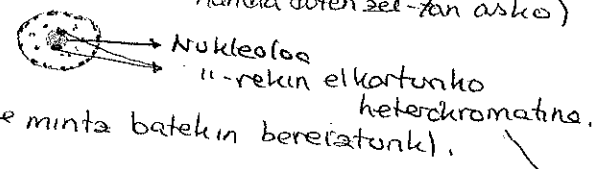 handia duten zel-tan asko)
Nukleoloa
"-rekin elkarturiko
heterokromatina.
e mintz batekin bereizturik).